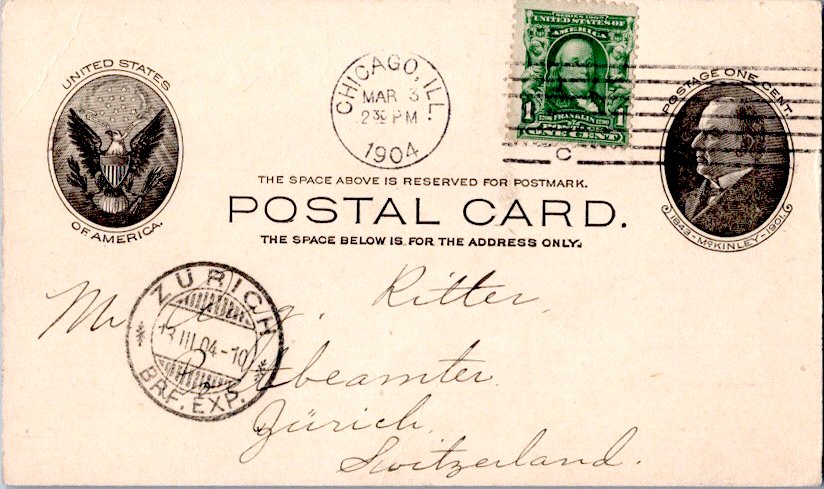 SERIES 1902
UNITED STATES OF
AMERICA
1790 FRANKLIN 1790
1 POSTAGE 1
ONE CENT
UNITED STATES
OF AMERICA.
CHICAGO, ILL.
MAR 3
2 30 PM
1904
C
POSTAGE ONE CENT.
1843-McKINLEY-1901
THE SPACE ABOVE IS RESERVED FOR POSTMARK.
POSTAL CARD.
THE SPACE BELOW IS FOR THE ADDRESS ONLY.
ZÜRICH
13 III 04-10
BRF. EXP.
Mr Ritter,
Zürich,
Switzerland.